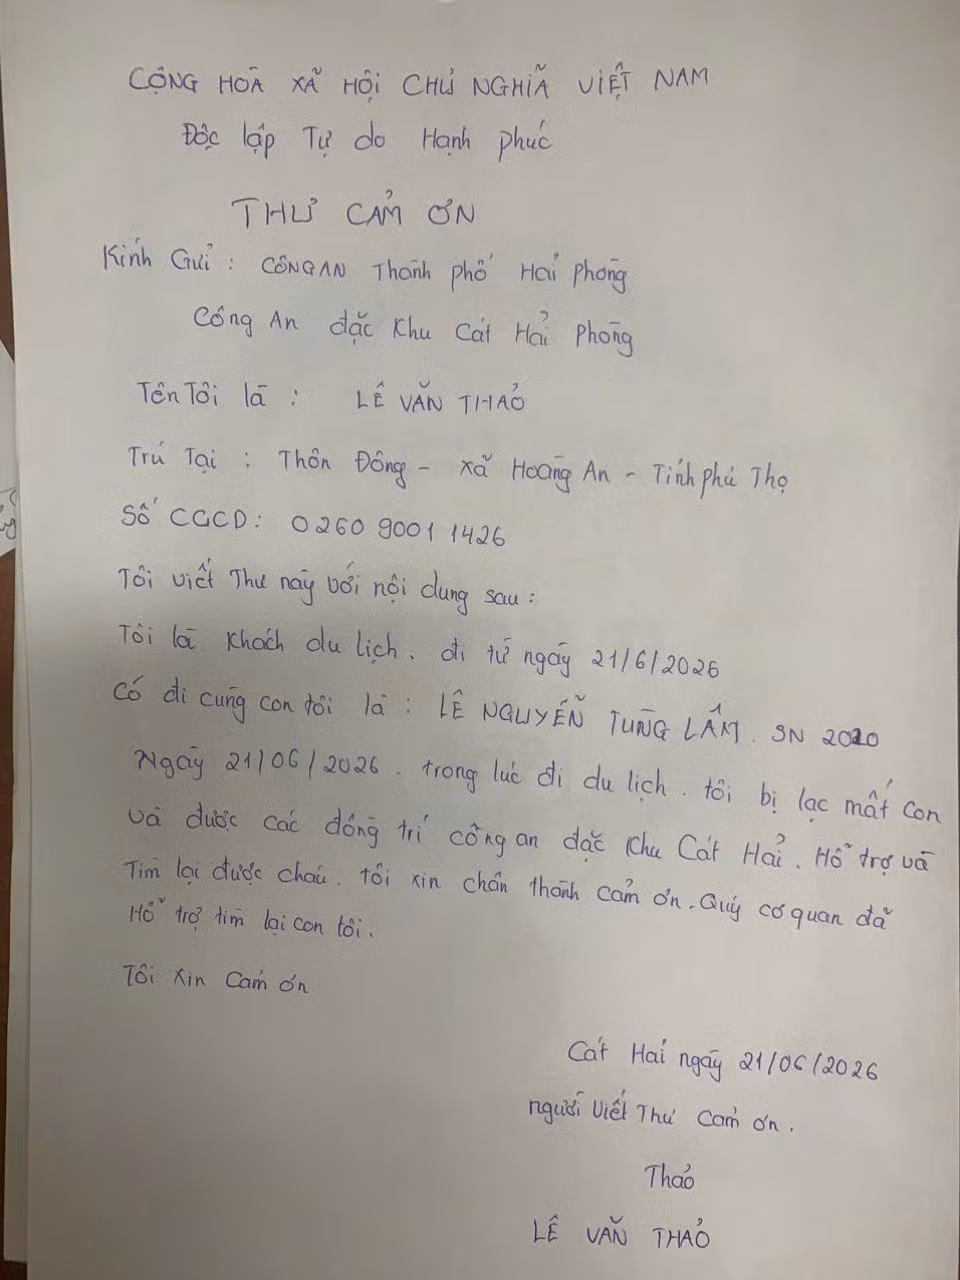 CỘNG HOÀ XÃ HỘI CHỦ NGHĨA VIỆT NAM
Độc lập Tự do Hạnh phúc
THƯ CẢM ƠN
Kính Gửi : CÔNG AN Thành phố Hải Phòng
Công An đặc Khu Cát Hải Phòng
Tên Tôi là : LÊ VĂN THẢO
Trú Tại : Thôn Đông - xã Hoàng An - Tỉnh phú Thọ
Số CCCD : 0260 9001 1426
Tôi viết Thư này với nội dung sau :
Tôi là Khách du lịch . đi từ ngày 21/6/2026
có đi cùng con tôi là : LÊ NGUYỄN TÙNG LÂM . SN 2020
Ngày 21/06/2026 . trong lúc đi du lịch . tôi bị lạc mất con
và được các đồng trí công an đặc Khu Cát Hải . Hỗ trợ và
Tìm lại được cháu . tôi xin chân thành cảm ơn . Quý cơ quan đã
Hỗ trợ tìm lại con tôi .
Tôi xin Cảm ơn
Cát Hải ngày 21/06/2026
người Viết Thư cảm ơn .
Thảo
LÊ VĂN THẢO